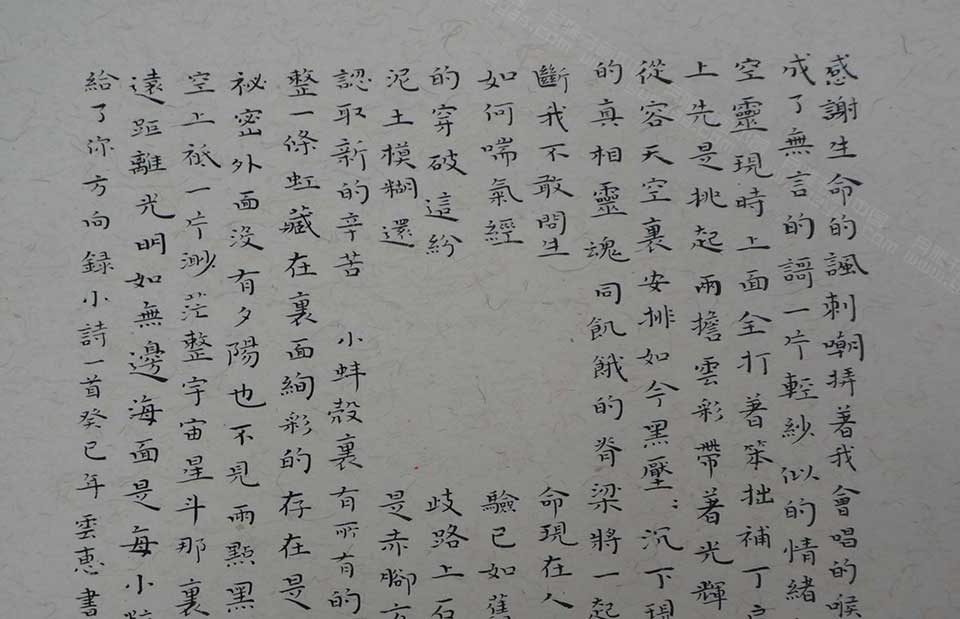 感謝生命的諷刺嘲挵著我會唱的喉
成了無言的謌一片輕紗似的情緒
空靈現時上面全打著笨拙補丁
上先是挑起兩擔雲彩帶著光輝
從容天空裏安排如今黑壓：沉下現
的真相靈魂同飢餓的脊梁將一起
斷我不敢問生 命現在人
如何喘氣經 驗已如舊
的穿破這紛 歧路上
泥土模糊還 是赤腳
認取新的辛苦 小蚌殼裏有所有的
整一條虹藏在裏面絢彩的存在是
祕密外面沒有夕陽也不見雨點黑
空上祇一片渺茫整宇宙星斗那裏
遠距離光明如無邊海面是每小粒
給了你方向録小詩一首癸巳年 雲惠書